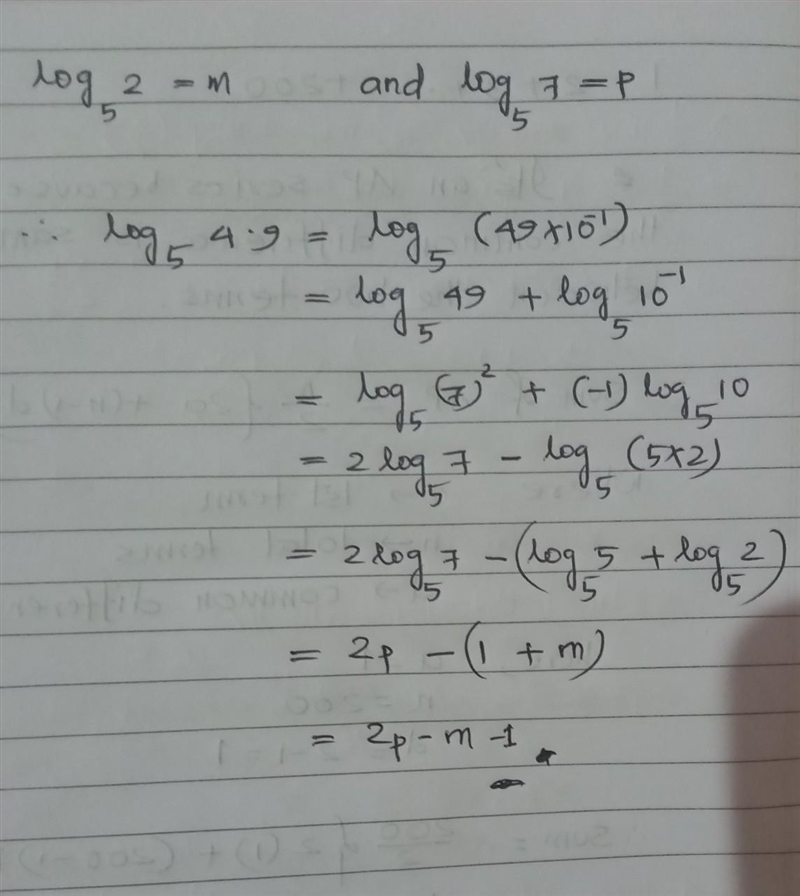 log₅ 2 = m and log₅ 7 = p
∴ log₅ 4·9 = log₅ (49×10⁻¹)
= log₅ 49 + log₅ 10⁻¹
= log₅ (7)² + (-1) log₅ 10
= 2 log₅ 7 - log₅ (5×2)
= 2 log₅ 7 - (log₅ 5 + log₅ 2)
= 2p - (1 + m)
= 2p - m - 1.